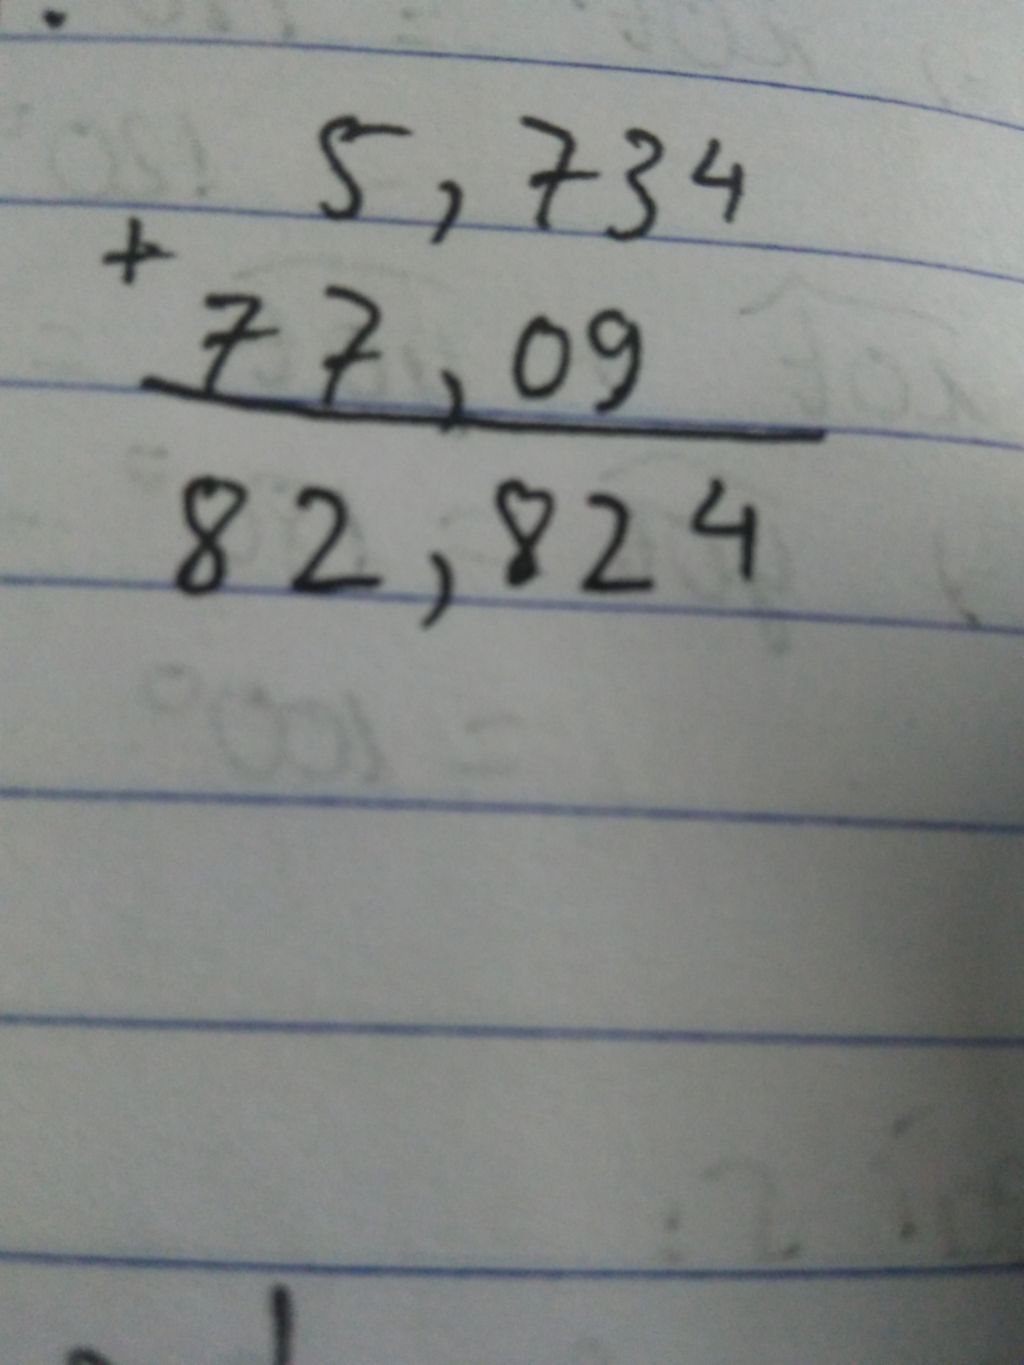 5,734
+
77,09
82,824